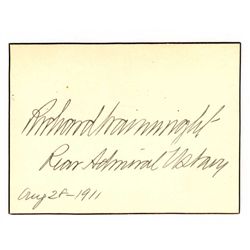 Richard Wainwright
Rear Admiral US Navy
Aug 28-1911